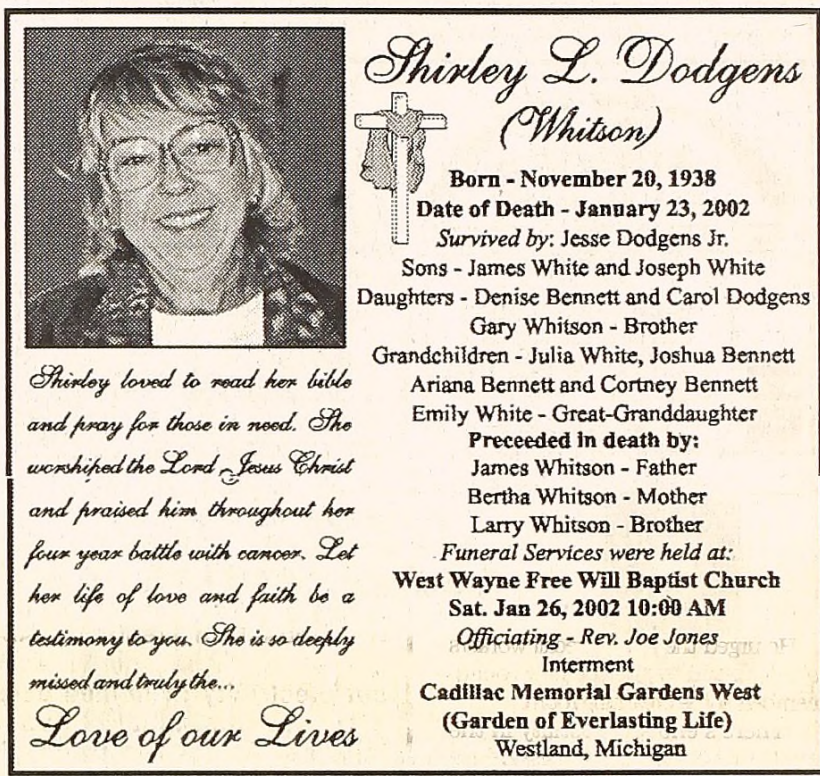 Shirley L. Dodgens
(Whitson)
Born - November 20, 1938
Date of Death - January 23, 2002
Survived by: Jesse Dodgens Jr.
Sons - James White and Joseph White
Daughters - Denise Bennett and Carol Dodgens
Gary Whitson - Brother
Grandchildren - Julia White, Joshua Bennett
Ariana Bennett and Cortney Bennett
Emily White - Great-Granddaughter
Preceeded in death by:
James Whitson - Father
Bertha Whitson - Mother
Larry Whitson - Brother
Funeral Services were held at:
West Wayne Free Will Baptist Church
Sat. Jan 26, 2002 10:00 AM
Officiating - Rev. Joe Jones
Interment
Cadillac Memorial Gardens West
(Garden of Everlasting Life)
Westland, Michigan
Shirley loved to read her bible
and pray for those in need. She
worshiped the Lord Jesus Christ
and praised him throughout her
four year battle with cancer. Let
her life of love and faith be a
testimony to you. She is so deeply
missed and truly the...
Love of our Lives